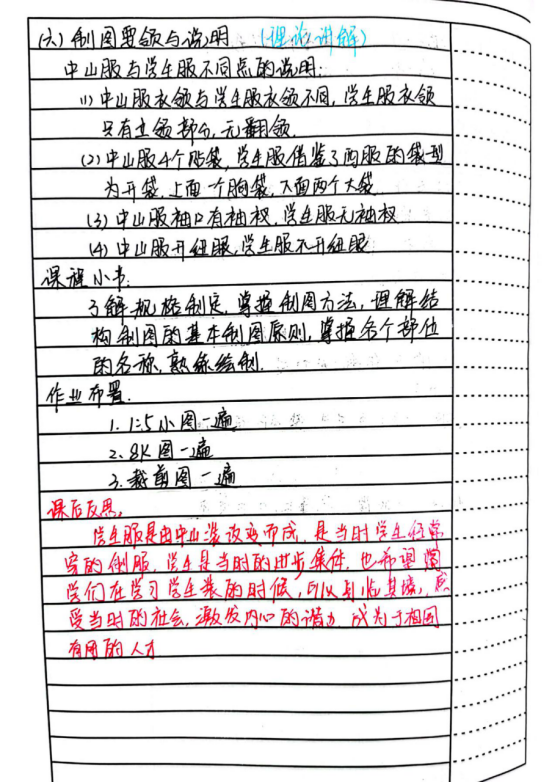 (六)制图要领与说明 (理论讲解)
中山服与学生服不同点的说明:
(1)中山服衣领与学生服衣领不同,学生服衣领
只有立领部分,无翻领.
(2)中山服4个贴袋,学生服借鉴了西服的袋型
为开袋.上面一个胸袋,下面两个大袋
(3)中山服袖口有袖衩.学生服无袖衩
(4)中山服开纽眼,学生服不开纽眼
课程小节:
了解规格制定,掌握制图方法,理解结
构制图的基本制图原则,掌握各个部位
的名称,熟练绘制.
作业布置.
1. 1:5小图一遍
2. 8K图一遍
3. 裁剪图一遍
课后反思.
学生服是由中山装改变而成,是当时学生经常
穿的制服.学生是当时的进步集体.也希望同
学们在学习学生装的时候,可以身临其境,感
受当时的社会,激发内心的潜力.成为于祖国
有用的人才